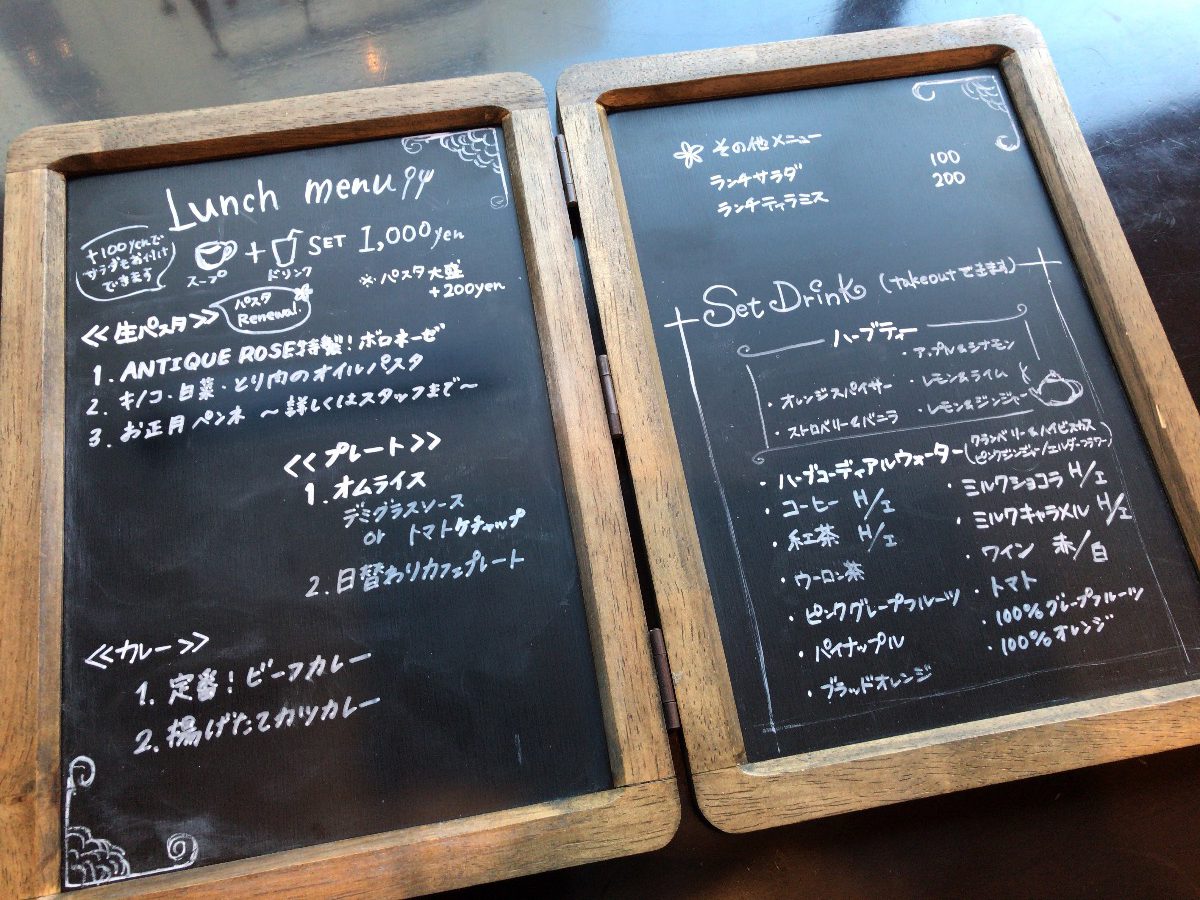 Lunch menu
+100yenで
サラダもお付けできます
スープ + ドリンク SET 1,000yen
※パスタ大盛
+200yen
≪生パスタ≫
パスタ
Renewal.
1. ANTIQUE ROSE特製!ボロネーゼ
2. キノコ・白菜・とり肉のオイルパスタ
3. お正月ペンネ 〜詳しくはスタッフまで〜
≪プレート≫
1. オムライス
デミグラスソース
or トマトケチャップ
2. 日替わりカフェプレート
≪カレー≫
1. 定番!ビーフカレー
2. 揚げたてカツカレー
その他メニュー
ランチサラダ 100
ランチティラミス 200
Set Drink (takeoutできます)
ハーブティー
・アップル&シナモン
・オレンジスパイサー ・レモン&ライム
・ストロベリー&バニラ ・レモン&ジンジャー
・ハーブコーディアルウォーター(クランベリー&ハイビスカス
ピンクジンジャー/エルダーフラワー)
・コーヒー H/I ・ミルクショコラ H/I
・紅茶 H/I ・ミルクキャラメル H/I
・ウーロン茶 ・ワイン 赤/白
・ピンクグレープフルーツ ・トマト
・パイナップル ・100%グレープフルーツ
・ブラッドオレンジ ・100%オレンジ